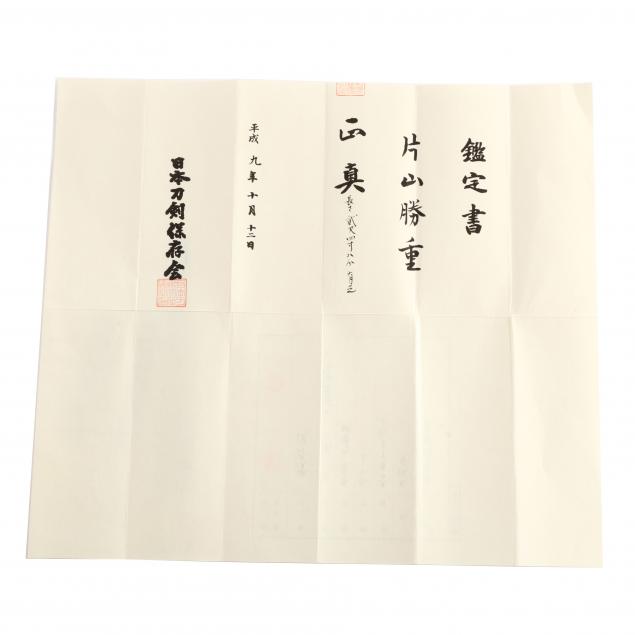 鑑定書
片山勝重
正真
長サ貳尺四寸八分
平成九年十月十二日
日本刀剣保存会